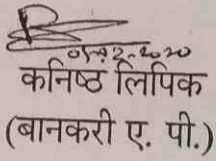 कनिष्ठ लिपिक
(बानकरी ए. पी.)